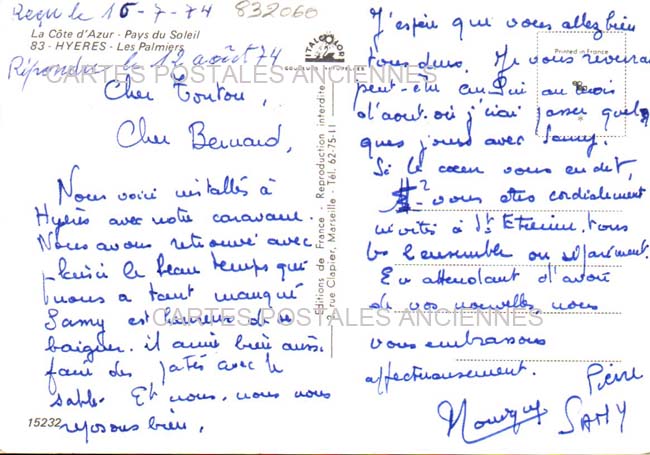 Reçu le 15-7-74 832060
La Côte d'Azur - Pays du Soleil
83 - HYERES - Les Palmiers
Répondu le 12 août 74
CARTES POSTALES ANCIENNES
Cher Tonton,
Cher Bernard,
Nous voici installés à
Hyères avec notre caravane.
Nous avons retrouvé avec
plaisir le beau temps qui
nous a tant manqué
Samy est heureux de se
baigner. il aime bien aussi
faire des patés avec le
sable. Et nous, nous nous
reposons bien.
15232
ITALCOLOR
Editions de France - Reproduction interdite
rue Clapier, Marseille - Tél. 62-75-11
Printed in France
J'espère que vous allez bien
tous deux. Je vous reverrai
peut-être au mois
d'août où j'irai passer quel
ques jours avec Samy.
Si le cœur vous en dit,
vous êtes cordialement
invités à St Etienne, tous
les 2 ensemble ou séparément.
En attendant d'avoir
de vos nouvelles, nous
vous embrassons
affectueusement.
Pierre
SAMY
CARTES POSTALES ANCIENNES